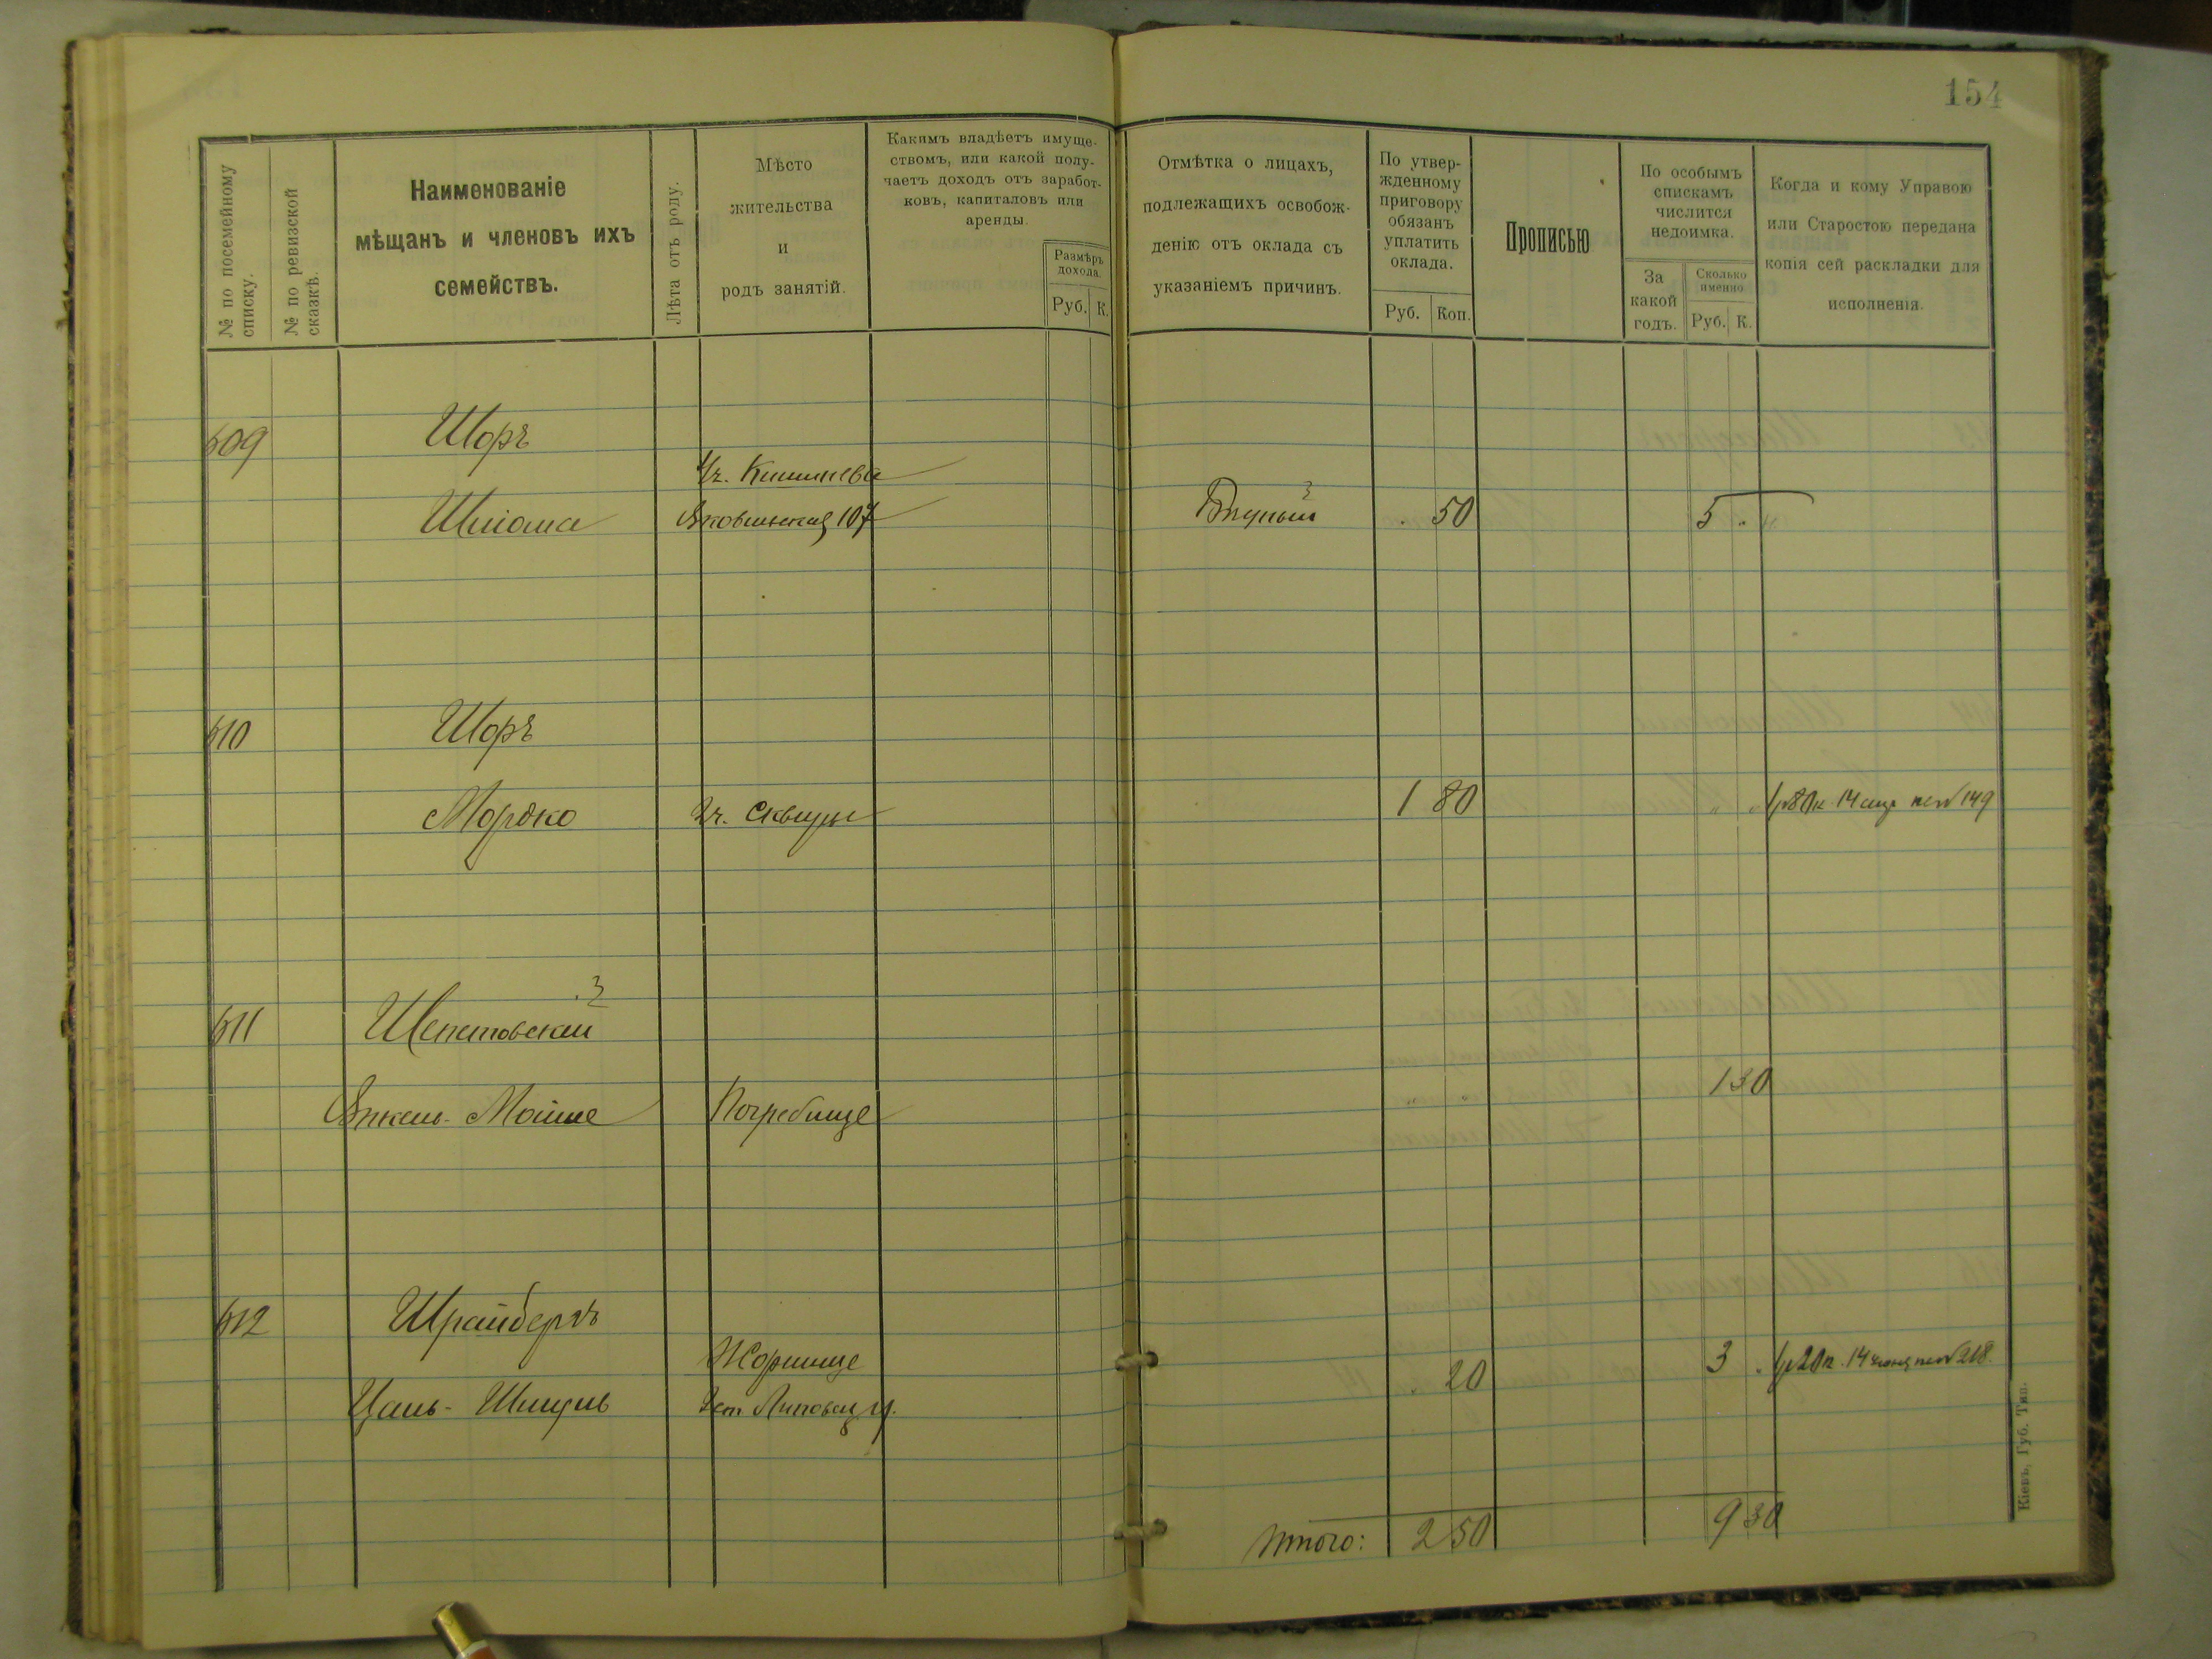 154
№ по посемейному списку.
№ по ревизской сказкѣ.
Наименованіе
мѣщанъ и членовъ ихъ
семействъ.
Лѣта отъ роду.
Мѣсто
жительства
и
родъ занятій.
Какимъ владѣетъ имуще-
ствомъ, или какой полу-
чаетъ доходъ отъ заработ-
ковъ, капиталовъ или
аренды.
Размѣръ
дохода.
Руб. К.
Отмѣтка о лицахъ,
подлежащихъ освобож-
денію отъ оклада съ
указаніемъ причинъ.
По утвер-
жденному
приговору
обязанъ
уплатить
оклада.
Руб. Коп.
Прописью
По особымъ
спискамъ
числится
недоимка.
За
какой
годъ.
Сколько
именно
Руб. К.
Когда и кому Управою
или Старостою передана
копія сей раскладки для
исполненія.
609 Шоръ
Кишинева
Шлiома 107 50 5
610 Шоръ
Мордко Сквиры 1 80 14 149
611 Шепетовскій
Янкель-Мойше Погребище 1 30
612 Шрайберъ
Жорнище
Цаль-Шмуль Липовец у. 20 3 14 218
Итого: 2 50 9 30
Кіевъ, Губ. Тип.